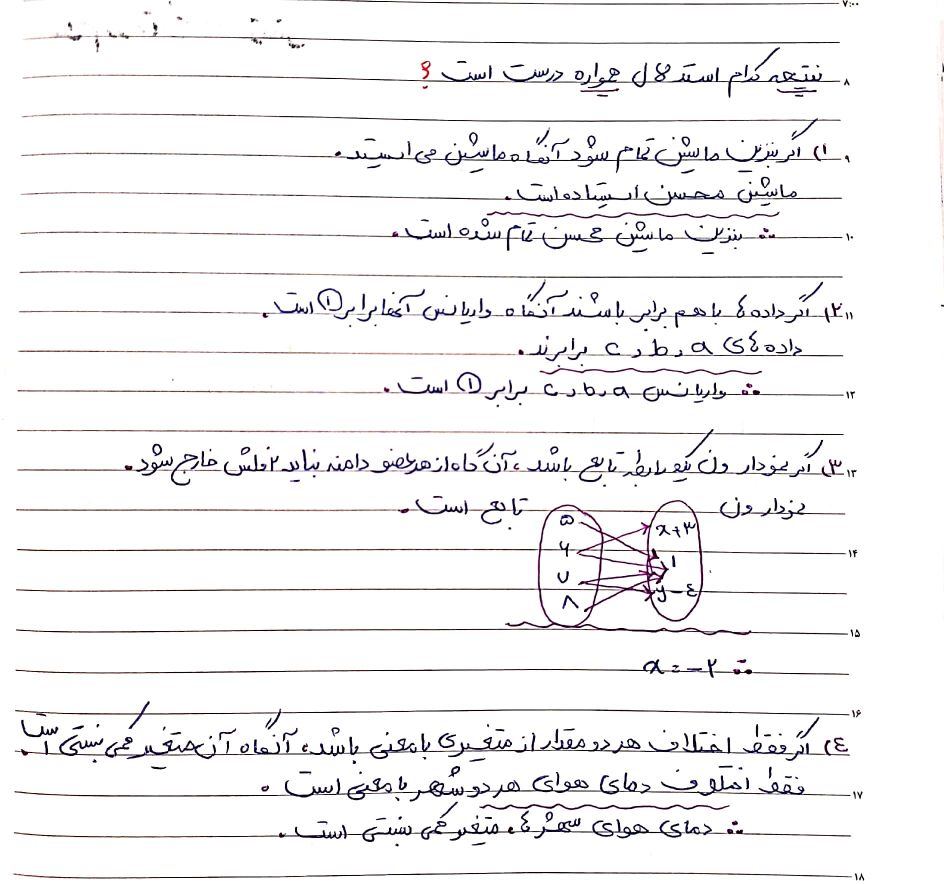 ۷:۰۰
۸ نتیجه کدام استدلال همواره درست است ؟
۹ ۱) اگر بنزین ماشین تمام شود آنگاه ماشین می ایستد.
ماشین محسن ایستاده است.
۱۰ ∴ بنزین ماشین محسن تمام شده است.
۱۱ ۲) اگر داده ها با هم برابر باشند آنگاه واریانس آنها برابر ① است.
داده های a , b , c برابرند.
۱۲ ∴ واریانس a , b , c برابر ① است.
۱۳ ۳) اگر نمودار ون یک رابطه تابع باشد ، آن گاه از هر عضو دامنه نباید ۲ فلش خارج شود.
نمودار ون تابع است.
۵ x+۳
۱۴ ۶ ۱
۷ y-٤
۸
۱۵
∴ x = -۲
۱۶
٤) اگر فقط اختلاف هر دو مقدار از متغیری با معنی باشد، آنگاه آن متغیر کمی نسبتی است.
۱۷ فقط اختلاف دمای هوای هر دو شهر با معنی است .
∴ دمای هوای شهرها، متغیر کمی نسبتی است.
۱۸